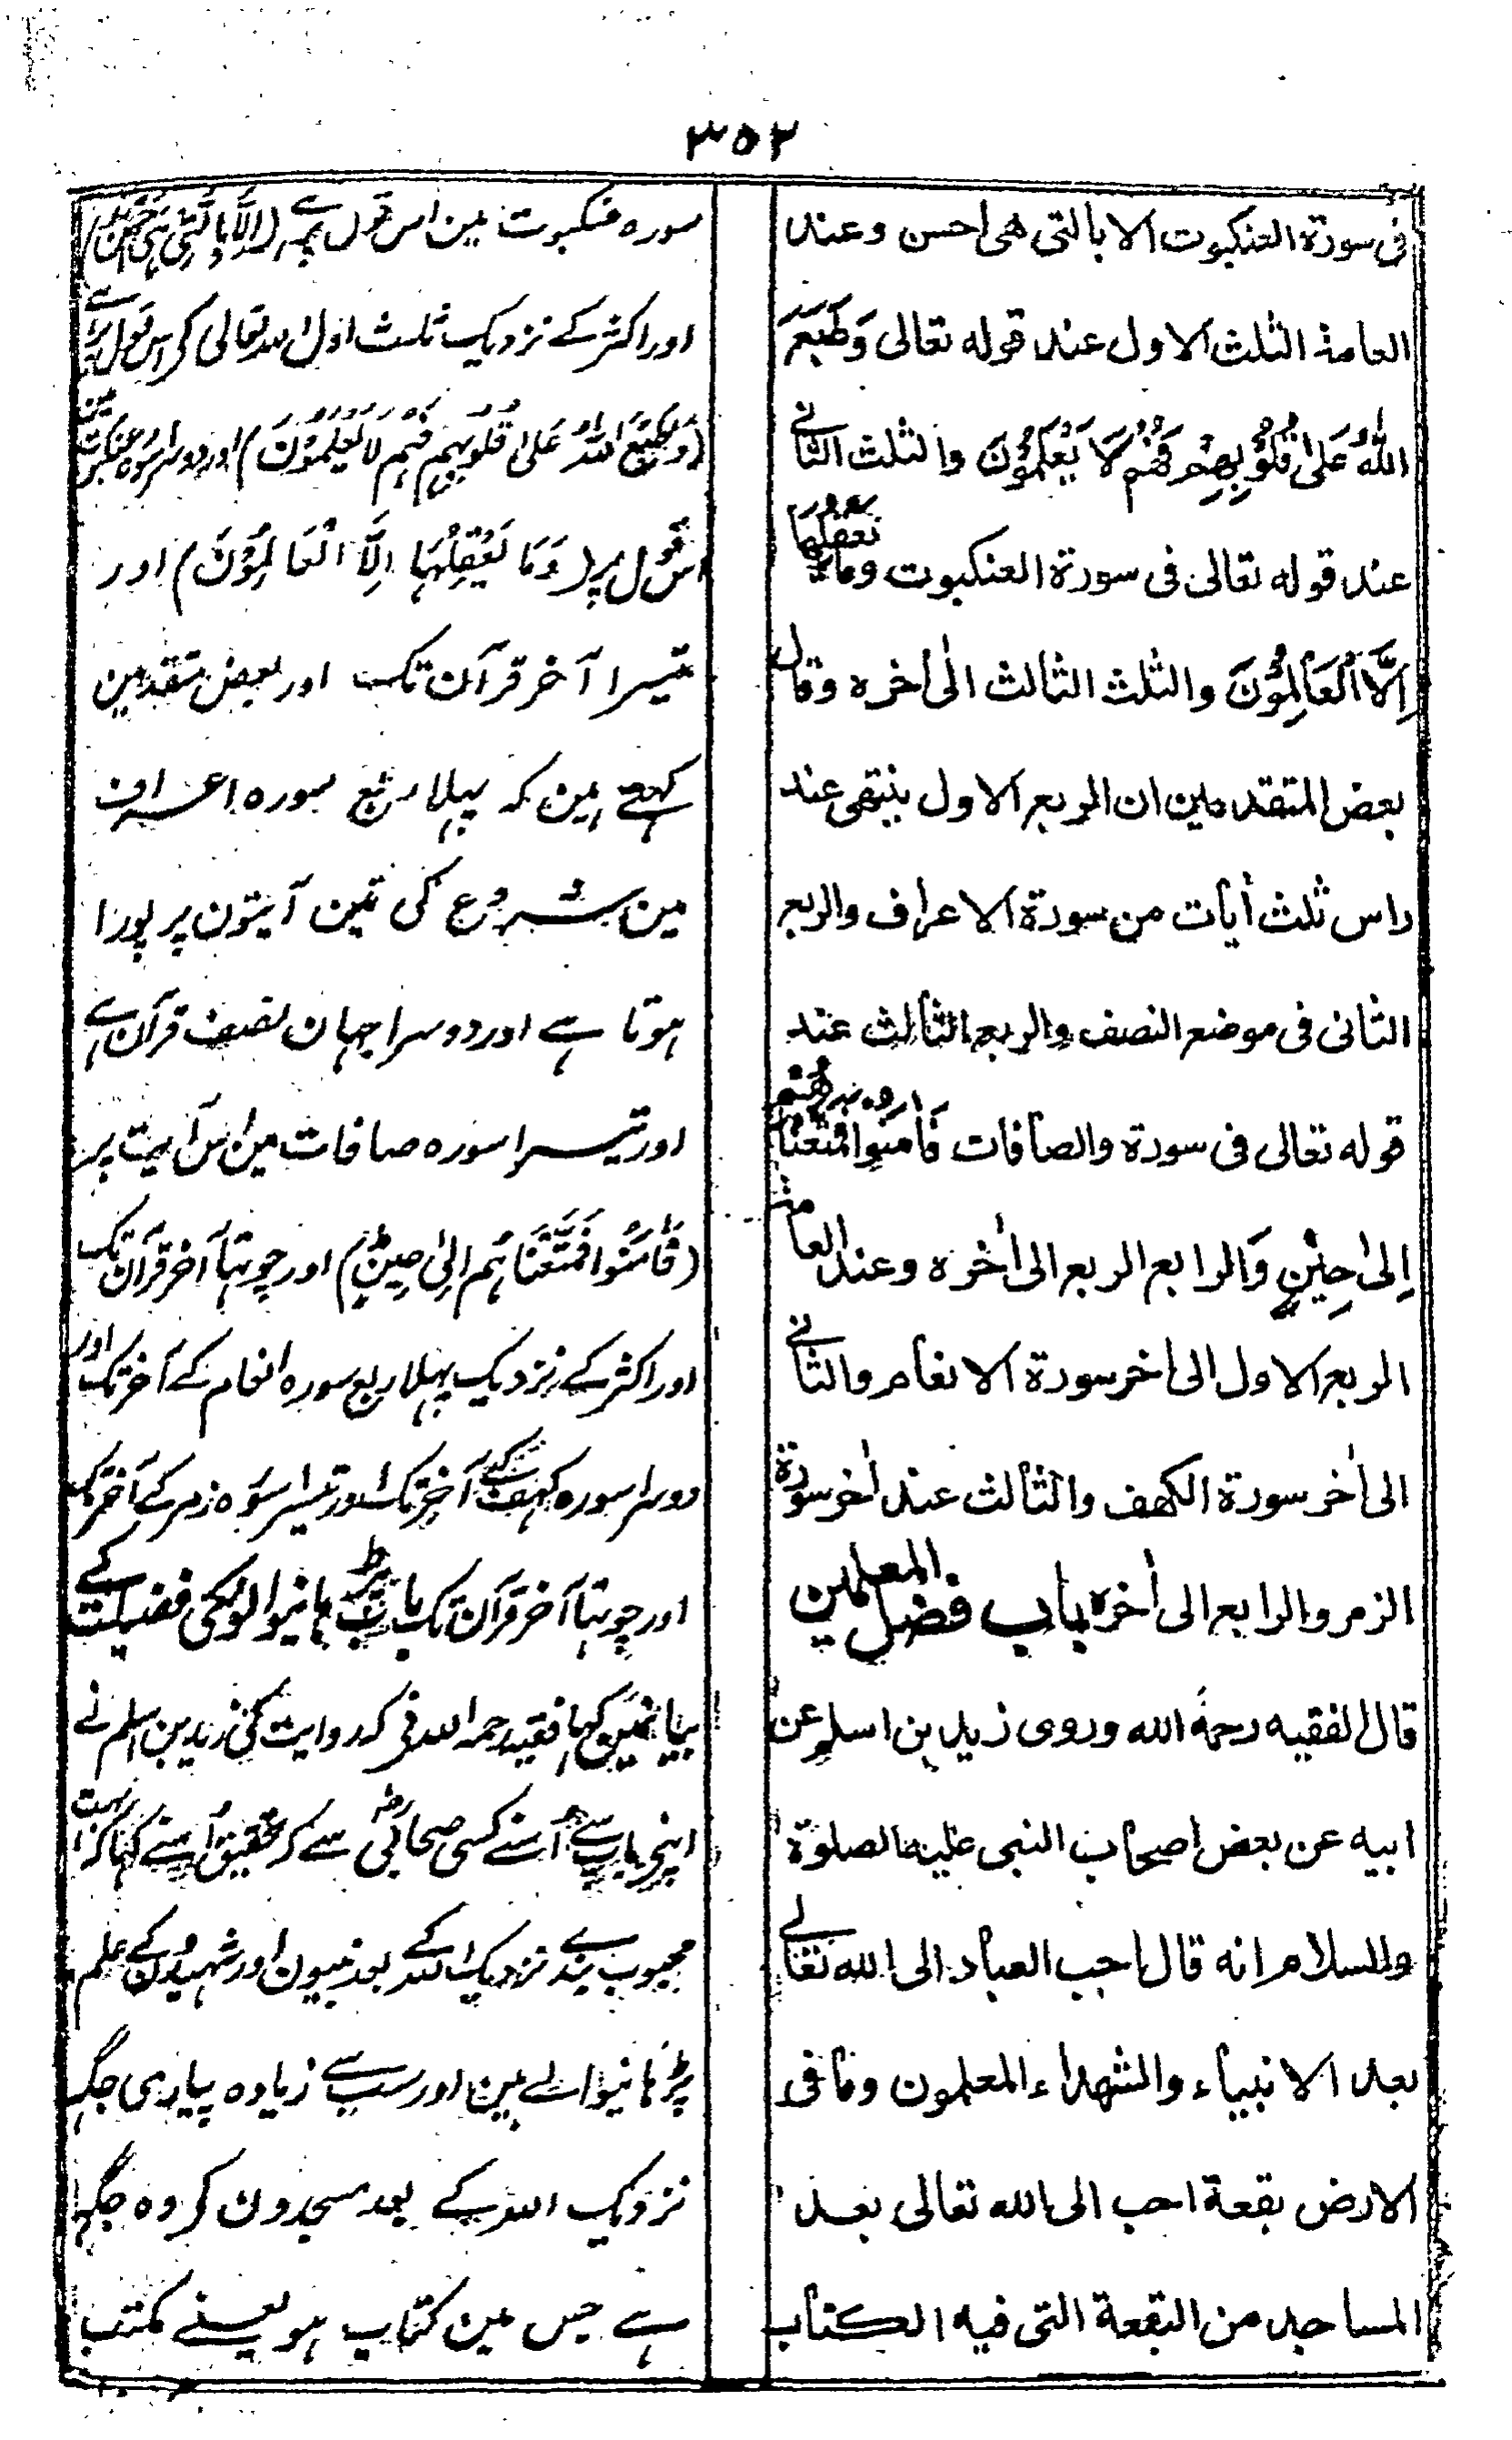 ۳۵۲
فی سورة العنکبوت الا بالتی هی احسن وعند
العامة الثلث الاول عند قوله تعالی وَطَبَعَ
اللّٰهُ عَلیٰ قُلُوْبِهِمْ فَهُمْ لَا یَعْلَمُوْنَ والثلث الثانی
عند قوله تعالی فی سورة العنکبوت وما یَعْقِلُهَا
اِلَّا الْعَالِمُوْنَ والثلث الثالث الی اٰخره وقال
بعض المتقدمین ان الربع الاول ینتهی عند
راس ثلث اٰیات من سورة الاعراف والربع
الثانی فی موضع النصف والربع الثالث عند
قوله تعالی فی سورة والصافات فَاٰمَنُوْا فَمَتَّعْنٰهُمْ
اِلیٰ حِیْنٍ وَالرابع الربع الی اٰخره وعند العامة
الربع الاول الی اٰخر سورة الانعام والثانی
الی اٰخر سورة الکهف والثالث عند اٰخر سورة
الزمر والرابع الی اٰخره باب فضل المعلمین
قال الفقیه رحمهٗ الله وروی زید بن اسلم عن
ابیه عن بعض اصحاب النبی علیه الصلوة
والسلام انه قال احب العباد الی الله تعالی
بعد الانبیاء والشهداء المعلمون وما فی
الارض بقعة احب الی الله تعالی بعد
المساجد من البقعة التی فیه الکتاب
سورہ عنکبوت مین اس قول پر ہے (اِلَّا بِالَّتِیْ ہِیَ اَحْسَنُ)
اور اکثر کے نزدیک ثلث اول اللہ تعالی کے اس قول پر ہے
(وَطَبَعَ اللّٰہُ عَلیٰ قُلُوْبِہِمْ فَہُمْ لَا یَعْلَمُوْنَ) اور دوسرا سورہ عنکبوت مین
اس قول پر (وَمَا یَعْقِلُہَا اِلَّا الْعَالِمُوْنَ) اور
تیسرا آخر قرآن تک اور بعض متقدمین
کہتے ہین کہ پہلا ربع سورہ اعراف
مین شروع کی تین آیتون پر پورا
ہوتا ہے اور دوسرا جہان نصف قرآن ہے
اور تیسرا سورہ صافات مین اس آیت پر
(فَاٰمَنُوْا فَمَتَّعْنَا ہُم اِلیٰ حِیْنٍ) اور چوتھا آخر قرآن تک
اور اکثر کے نزدیک پہلا ربع سورہ انعام کے آخر تک اور
دوسرا سورہ کہف کے آخر تک اور تیسرا سورہ زمر کے آخر تک
اور چوتھا آخر قرآن تک باب پڑہانیوالونکی فضیلت کے
بیانمین کہا فقیہ رحمہ اللہ نے کہ روایت کی زید بن اسلم نے
اپنے باپ سے اُسنے کسی صحابی رض سے کہ تحقیق اُسنے کہا کہ بہت
محبوب بندے نزدیک اللہ کے بعد نبیون اور شہیدون کے علم
پڑہانیوالے ہین اور سب سے زیادہ پیاری جگہ
نزدیک اللہ کے بعد مسجدون کے وہ جگہ
ہے جس مین کتاب ہو یعنے مکتب